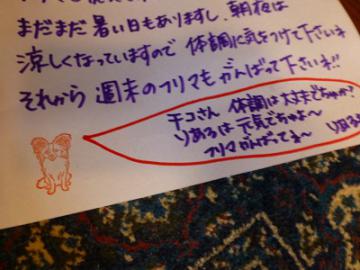 まだまだ暑い日もありますし、朝夜は
涼しくなっていますので 体調に気をつけて下さいネ
それから 週末のフリマもがんばって下さいネ!!
チコさん 体調は大丈夫でちゅか?
りあるは元気でちゅよ〜
フリマがんばってネ〜